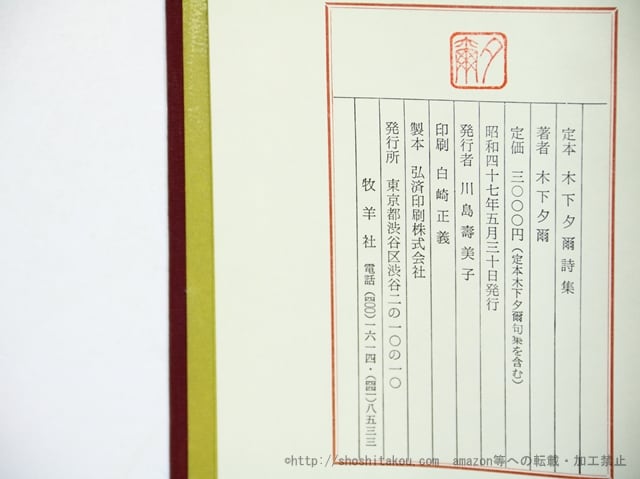 夕爾
定本 木下夕爾詩集
著者 木下夕爾
定価 三〇〇〇円（定本木下夕爾句集を含む）
昭和四十七年五月三十日発行
発行者 川島壽美子
印刷 白崎正義
製本 弘済印刷株式会社
発行所 東京都渋谷区渋谷二の一〇の一〇
牧羊社 電話（四〇〇）一六一四・（四四一）八五三三
©http://shoshitakou.com amazon等への転載・加工禁止